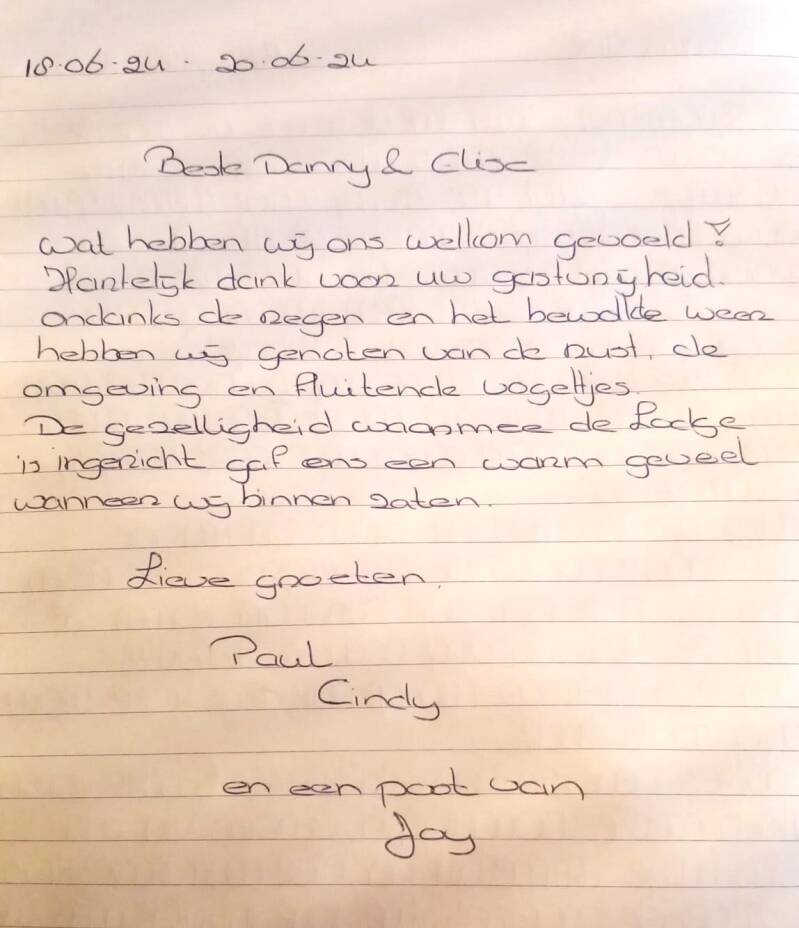 18.06.24 - 20.06.24
Beste Danny & Elise
wat hebben wij ons welkom gevoeld!
Hartelijk dank voor uw gastvrijheid.
ondanks de regen en het bewolkte weer
hebben wij genoten van de rust, de
omgeving en fluitende vogeltjes.
De gezelligheid waarmee de Lodge
is ingericht gaf ons een warm geveel
wanneer wij binnen zaten.
Lieve groeten,
Paul
Cindy
en een poot van
Joy